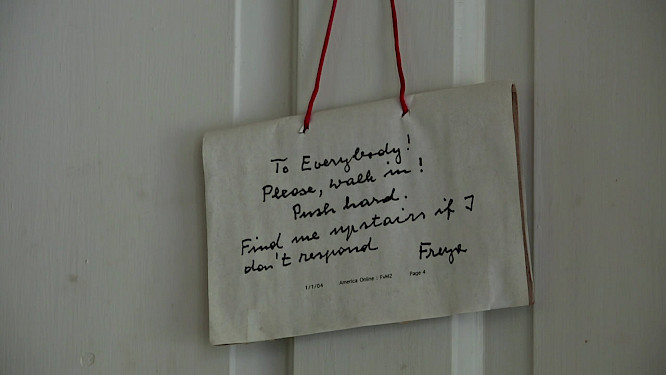 To Everybody!
Please, walk in!
Push hard.
Find me upstairs if I
don't respond Freya
1/1/04 America Online : FvMZ Page 4